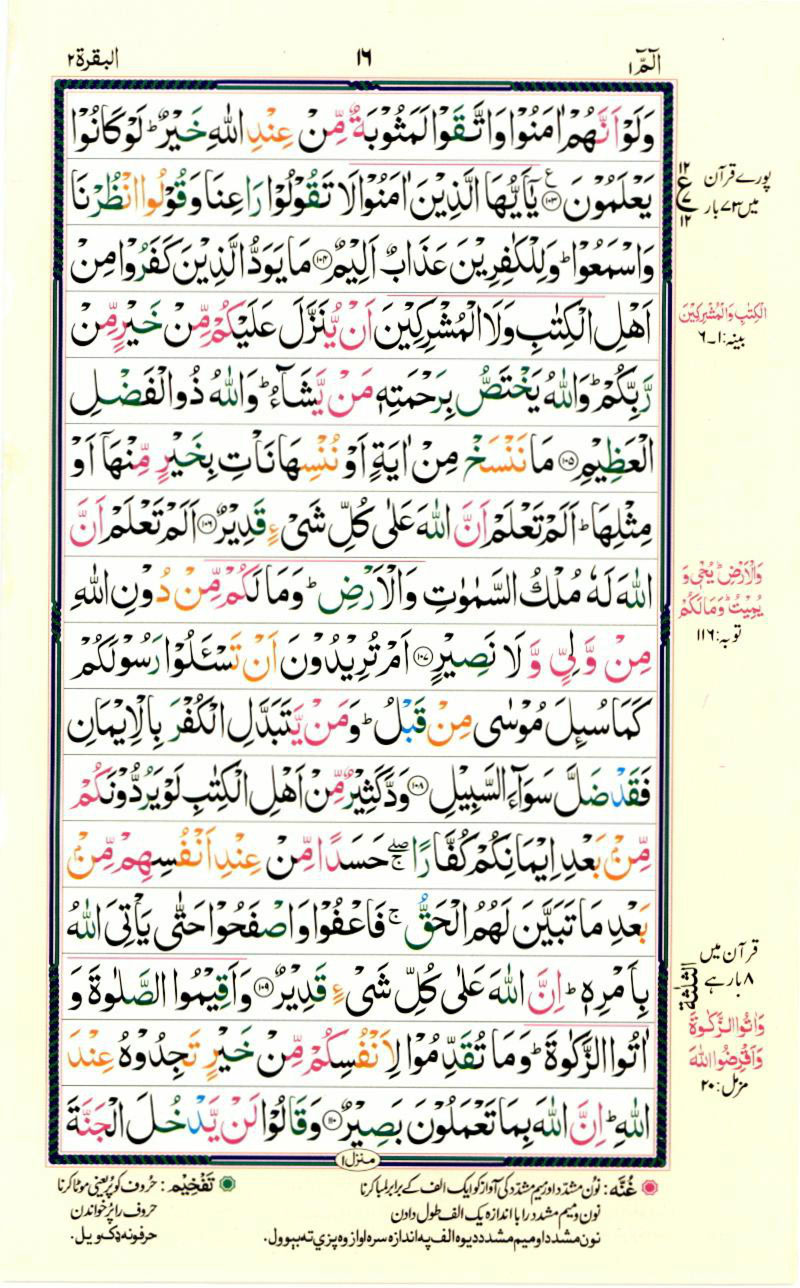 الٓمّٓ ١
١٦
البقرة ٢
وَلَوْ اَنَّهُمْ اٰمَنُوْا وَاتَّقَوْا لَمَثُوْبَةٌ مِّنْ عِنْدِ اللّٰهِ خَيْرٌ ؕ لَوْ كَانُوْا
يَعْلَمُوْنَ ﴿١٠٣﴾ يٰۤاَيُّهَا الَّذِيْنَ اٰمَنُوْا لَا تَقُوْلُوْا رَاعِنَا وَقُوْلُوا انْظُرْنَا
وَاسْمَعُوْا ؕ وَلِلْكٰفِرِيْنَ عَذَابٌ اَلِيْمٌ ﴿١٠٤﴾ مَا يَوَدُّ الَّذِيْنَ كَفَرُوْا مِنْ
اَهْلِ الْكِتٰبِ وَلَا الْمُشْرِكِيْنَ اَنْ يُّنَزَّلَ عَلَيْكُمْ مِّنْ خَيْرٍ مِّنْ
رَّبِّكُمْ ؕ وَاللّٰهُ يَخْتَصُّ بِرَحْمَتِهٖ مَنْ يَّشَآءُ ؕ وَاللّٰهُ ذُو الْفَضْلِ
الْعَظِيْمِ ﴿١٠٥﴾ مَا نَنْسَخْ مِنْ اٰيَةٍ اَوْ نُنْسِهَا نَاْتِ بِخَيْرٍ مِّنْهَاۤ اَوْ
مِثْلِهَا ؕ اَلَمْ تَعْلَمْ اَنَّ اللّٰهَ عَلٰى كُلِّ شَىْءٍ قَدِيْرٌ ﴿١٠٦﴾ اَلَمْ تَعْلَمْ اَنَّ
اللّٰهَ لَهٗ مُلْكُ السَّمٰوٰتِ وَالْاَرْضِ ؕ وَمَا لَكُمْ مِّنْ دُوْنِ اللّٰهِ
مِنْ وَّلِىٍّ وَّلَا نَصِيْرٍ ﴿١٠٧﴾ اَمْ تُرِيْدُوْنَ اَنْ تَسْـَٔلُوْا رَسُوْلَكُمْ
كَمَا سُىِٕلَ مُوْسٰى مِنْ قَبْلُ ؕ وَمَنْ يَّتَبَدَّلِ الْكُفْرَ بِالْاِيْمَانِ
فَقَدْ ضَلَّ سَوَآءَ السَّبِيْلِ ﴿١٠٨﴾ وَدَّ كَثِيْرٌ مِّنْ اَهْلِ الْكِتٰبِ لَوْ يَرُدُّوْنَكُمْ
مِّنْۢ بَعْدِ اِيْمَانِكُمْ كُفَّارًا ۖۚ حَسَدًا مِّنْ عِنْدِ اَنْفُسِهِمْ مِّنْۢ
بَعْدِ مَا تَبَيَّنَ لَهُمُ الْحَقُّ ۚ فَاعْفُوْا وَاصْفَحُوْا حَتّٰى يَاْتِىَ اللّٰهُ
بِاَمْرِهٖ ؕ اِنَّ اللّٰهَ عَلٰى كُلِّ شَىْءٍ قَدِيْرٌ ﴿١٠٩﴾ وَاَقِيْمُوا الصَّلٰوةَ وَ
اٰتُوا الزَّكٰوةَ ؕ وَمَا تُقَدِّمُوْا لِاَنْفُسِكُمْ مِّنْ خَيْرٍ تَجِدُوْهُ عِنْدَ
اللّٰهِ ؕ اِنَّ اللّٰهَ بِمَا تَعْمَلُوْنَ بَصِيْرٌ ﴿١١٠﴾ وَقَالُوْا لَنْ يَّدْخُلَ الْجَنَّةَ
منزل ١
١٢
ع
٧
١٢
پورے قرآن
میں ٧٣ بار
الْكِتٰبِ وَالْمُشْرِكِيْنَ
بینہ: ١۔٦
وَالْاَرْضِ ؕ يُحْىٖ وَ
يُمِيْتُ ؕ وَمَا لَكُمْ
توبہ: ١١٦
قرآن میں
٨ بار ہے
الثلثة
وَاٰتُوا الزَّكٰوةَ
وَاَقْرِضُوا اللّٰهَ
مزمل: ٢٠
غُنَّه: نون مشدد اور میم مشدد کی آواز کو ایک الف کے برابر لمبا کرنا
نون و میم مشدد را با اندازہ یک الف طول دادن
نون مشدد او میم مشدد دیوہ الف په اندازه سره اواز وه پزې ته بېوول.
تَفْخِيْم: حروف کو پُر یعنی موٹا کرنا
حروف را پُر خواندن
حرفونه ډک ویل.